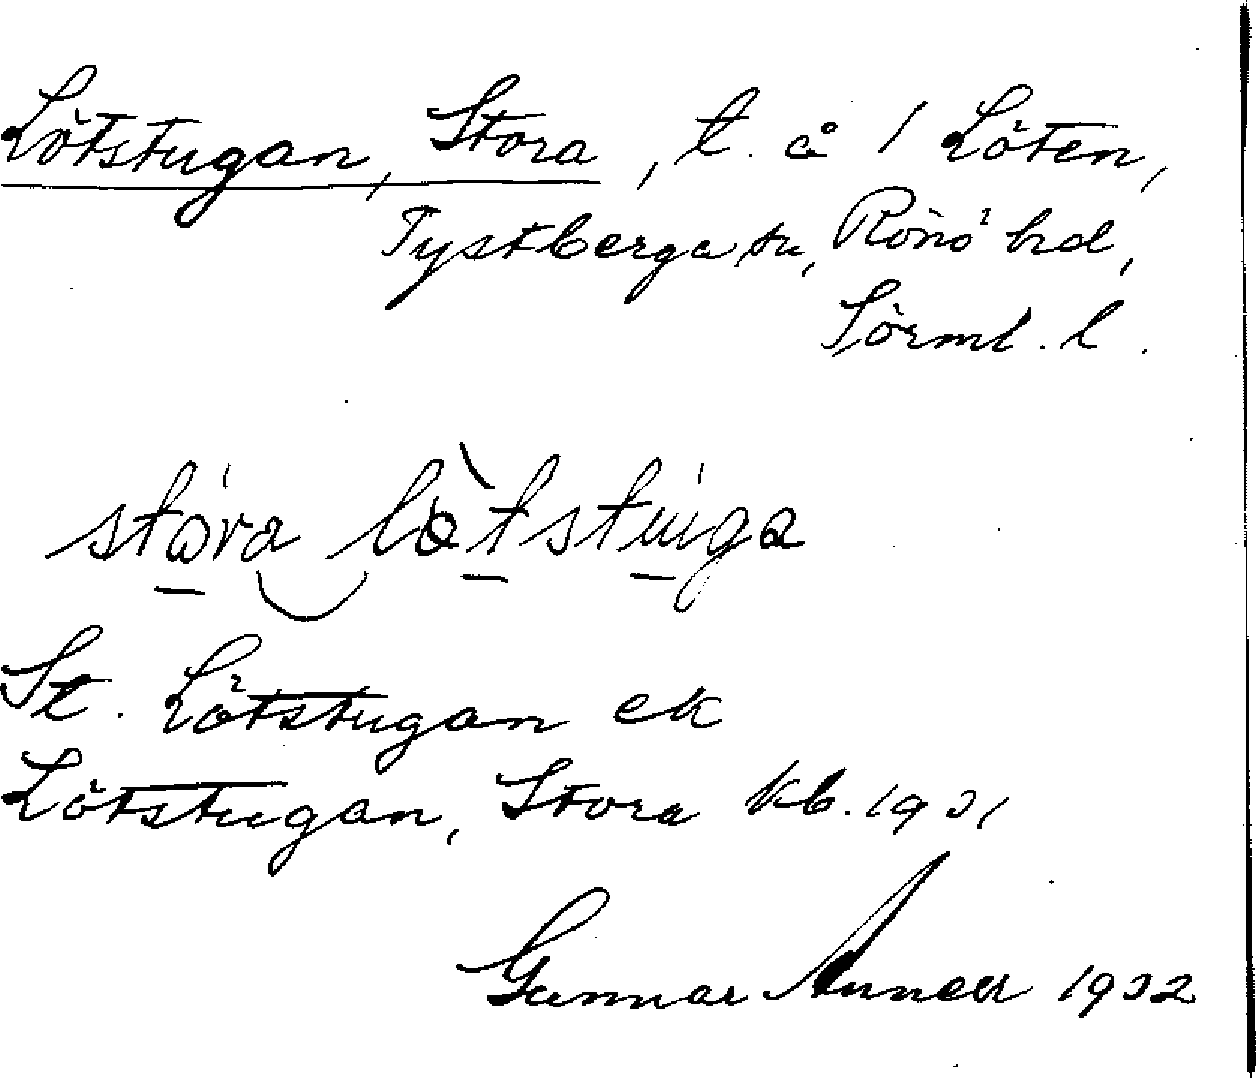 Lötstugan, Stora, t. å 1 Löten,
Tystberga sn, Rönö hd,
Sörml. l.
stora lötstuga
St. Lötstugan ek
Lötstugan, Stora kb. 1931
Gunnar 1932